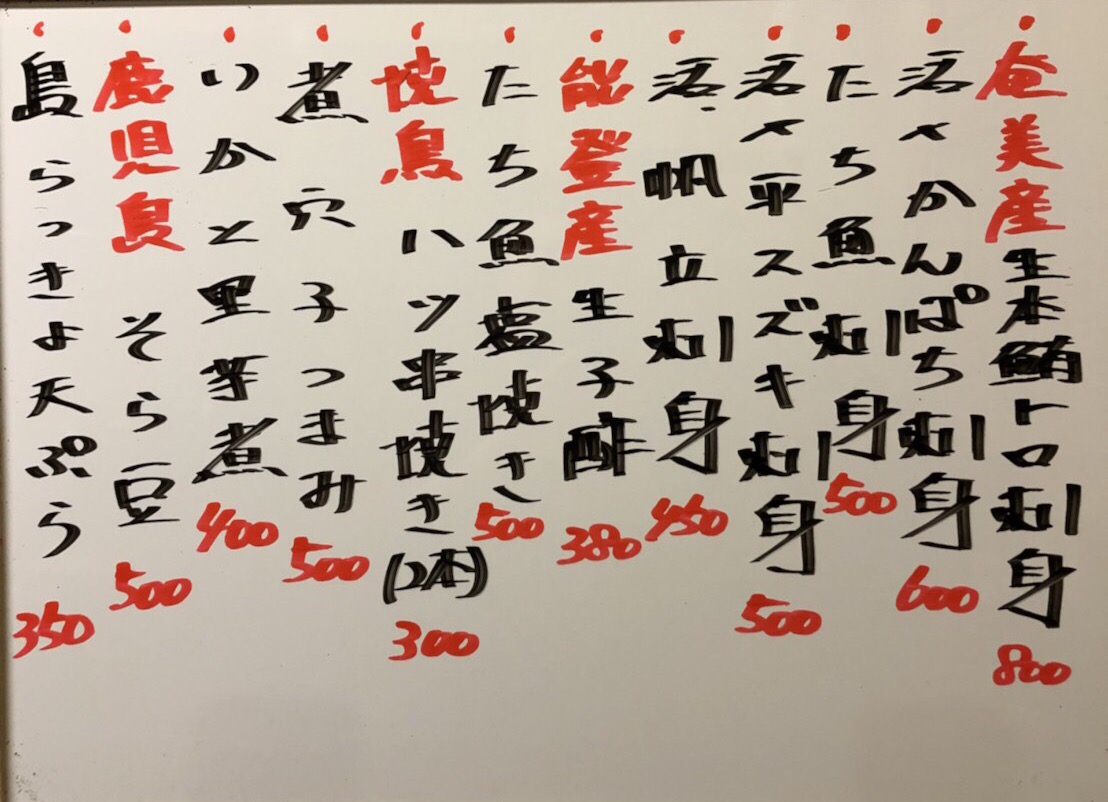 奄美産生本鮪トロ刺身 800
活〆かんぱち刺身 600
たち魚刺身 500
活〆平スズキ刺身 500
活帆立刺身 450
能登産生子酢 380
たち魚塩焼き 500
焼鳥ハツ串焼き(2本) 300
煮穴子つまみ 500
いかと里芋煮 400
鹿児島そら豆 500
島らっきょ天ぷら 350